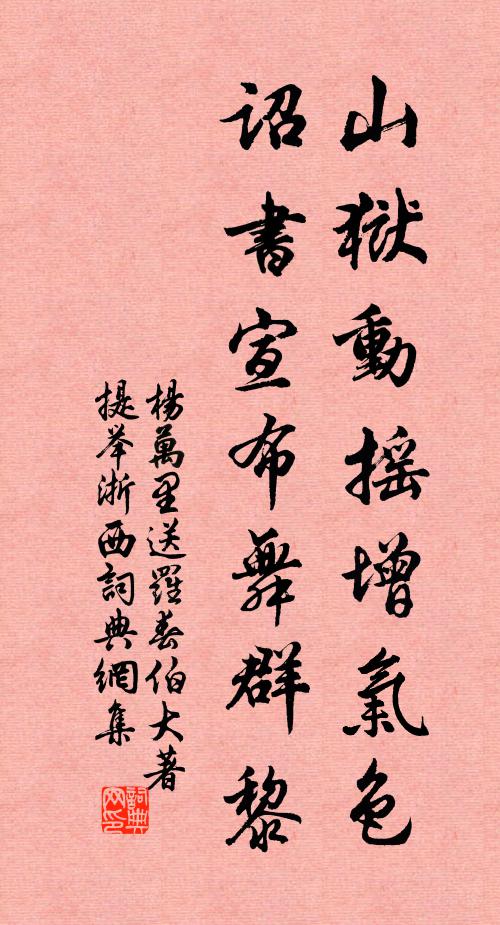 山獄動摇增氣色
詔書宣布舞群黎
楊萬里送羅春伯大著
提举浙西詞典網集
詞典网印